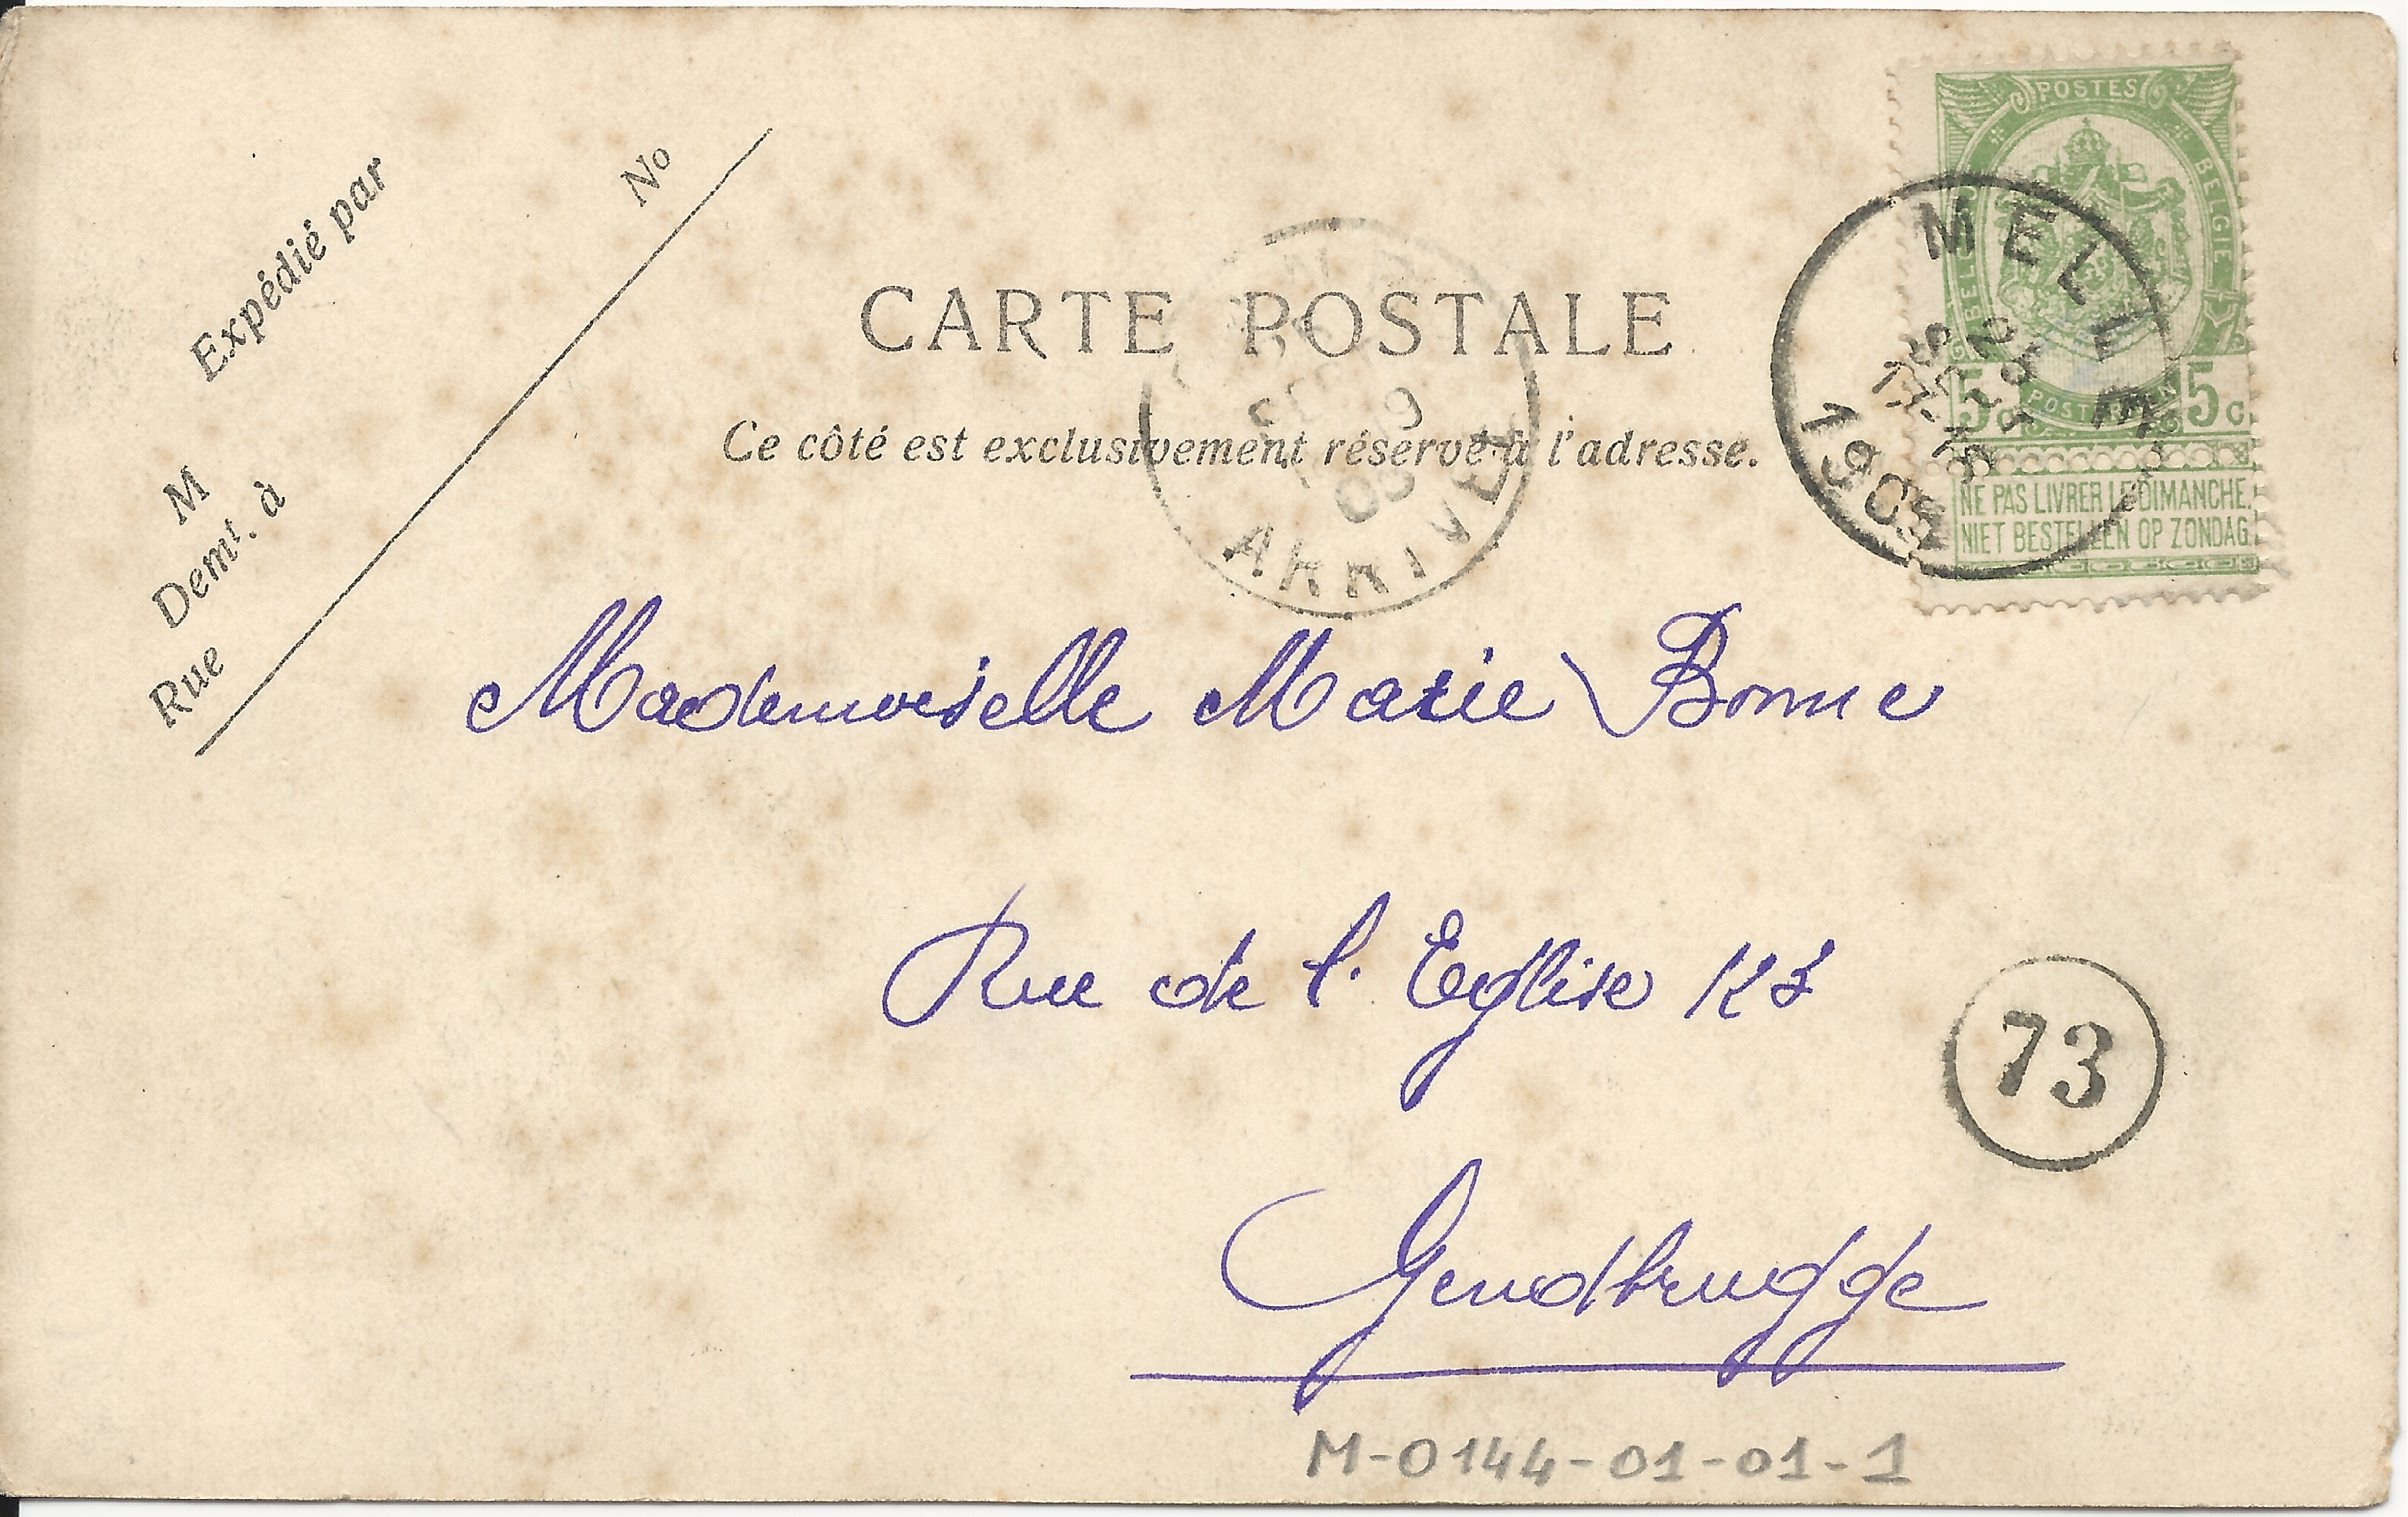 Expédié par
No
M
Demt. à
Rue
CARTE POSTALE
Ce côté est exclusivement réservé à l'adresse.
ARRIVÉE
POSTES
BELGIE
5c 5c
NE PAS LIVRER LE DIMANCHE.
NIET BESTELLEN OP ZONDAG.
MELLE
1905
Mademoiselle Marie Bonne
Rue de l'Eglise
73
Gendbrugge
M-0144-01-01-1